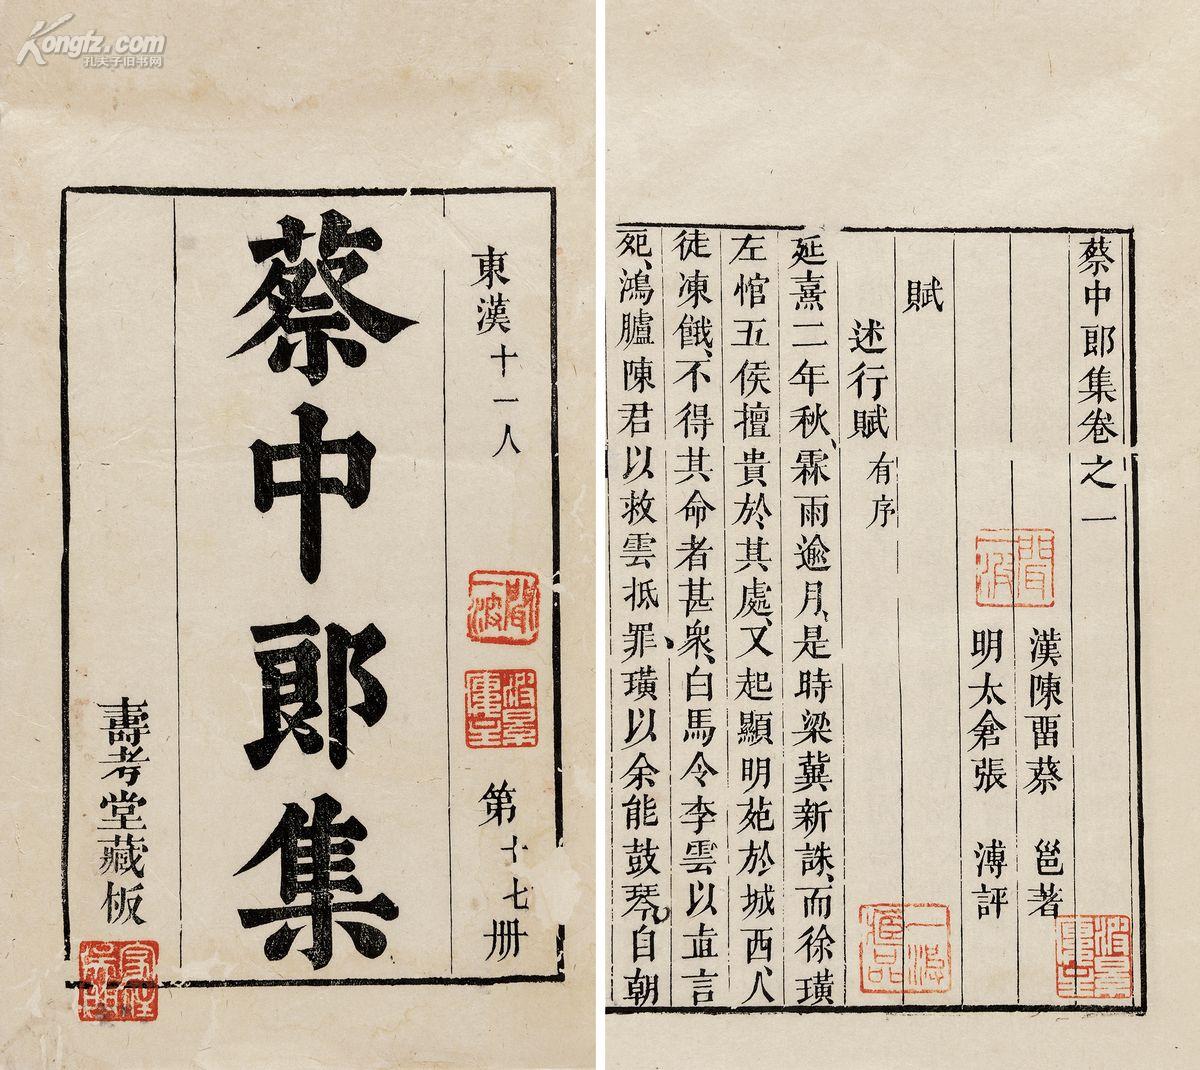 Kongfz.com
孔夫子旧书网
東漢十一人
第十七册
蔡中郎集
壽考堂藏板
蔡中郎集卷之一
漢陳畱蔡 邕著
明太倉張 溥評
賦
述行賦有序
延熹二年秋、霖雨逾月、是時梁冀新誅、而徐璜
左悺五侯擅貴於其處、又起顯明苑於城西、人
徒凍餓、不得其命者甚衆、白馬令李雲以直言
死、鴻臚陳君以救雲抵罪、璜以余能鼓琴、白朝